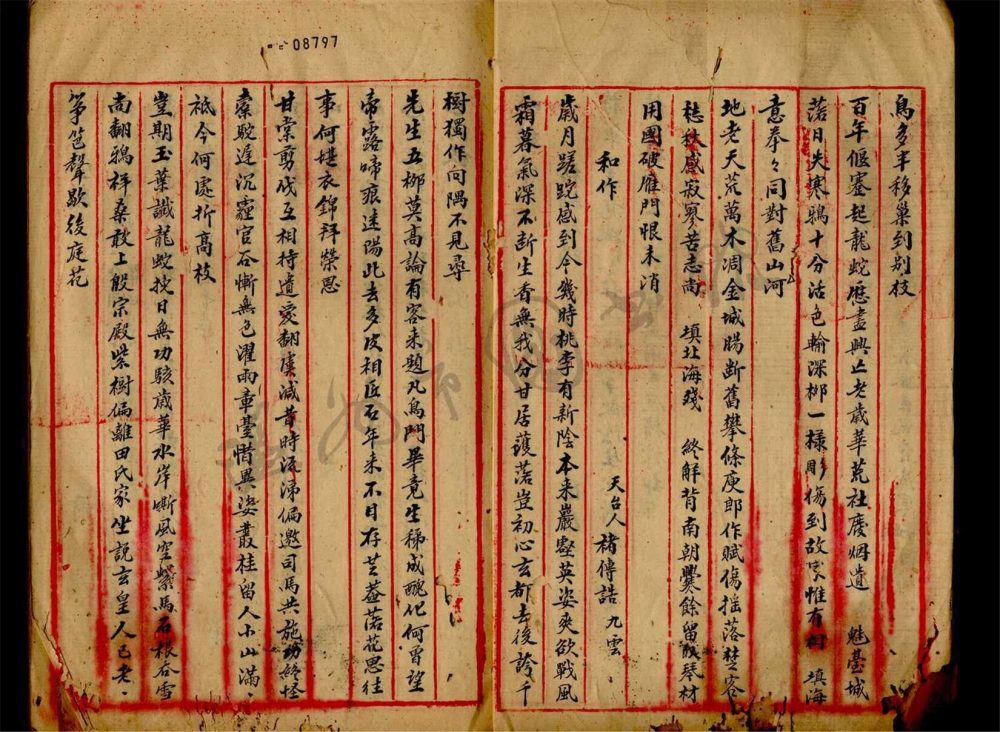 08797
鳥多半移巢到別枝
百年偃蹇起龍蛇歷盡興亡老歲華荒社廢烟遺 魅臺城
落日失寒鴉十分沽色輸深柳一樣彫傷到故家惟有桐 填海
意拳々同對舊山河
地老天荒萬木凋金城腸斷舊攀條庾郎作賦傷搖落楚客
愁秋感寂寥苦志尚 填北海殘 終解背南朝爨餘留取琴材
用國破雁門恨未消
和作 天台人 褚傳誥 九雲
歲月蹉跎感到今幾時桃李有新陰本来巖壑英姿爽欲戰風
霜暮氣深不斷生香無我分甘居蒦落豈初心玄都去後誇千
樹獨作向隅不見尋
先生五柳莫高論有客来題凡鳥門畢竟生稊成醜化何曾望
帝露啼痕迷陽此去多皮相匠石年来不目存芝蓋落花思往
事何堪衣錦拜榮恩
甘棠剪伐互相待遺愛翻虞減昔時流涕偏邀司馬共施功終怪
橐駝遲沉霾官谷慚無色濯雨章臺惜異姿叢桂留人小山滿
祗今何處折高枝
豈期玉葉讖龍蛇挽日無功駭歲華水岸嘶風空繫馬石根吞雪
尚翻鴉梓桑敢上殷宗殿紫樹偏離田氏家坐說玄皇人已老
箏笆聲歇後庭花